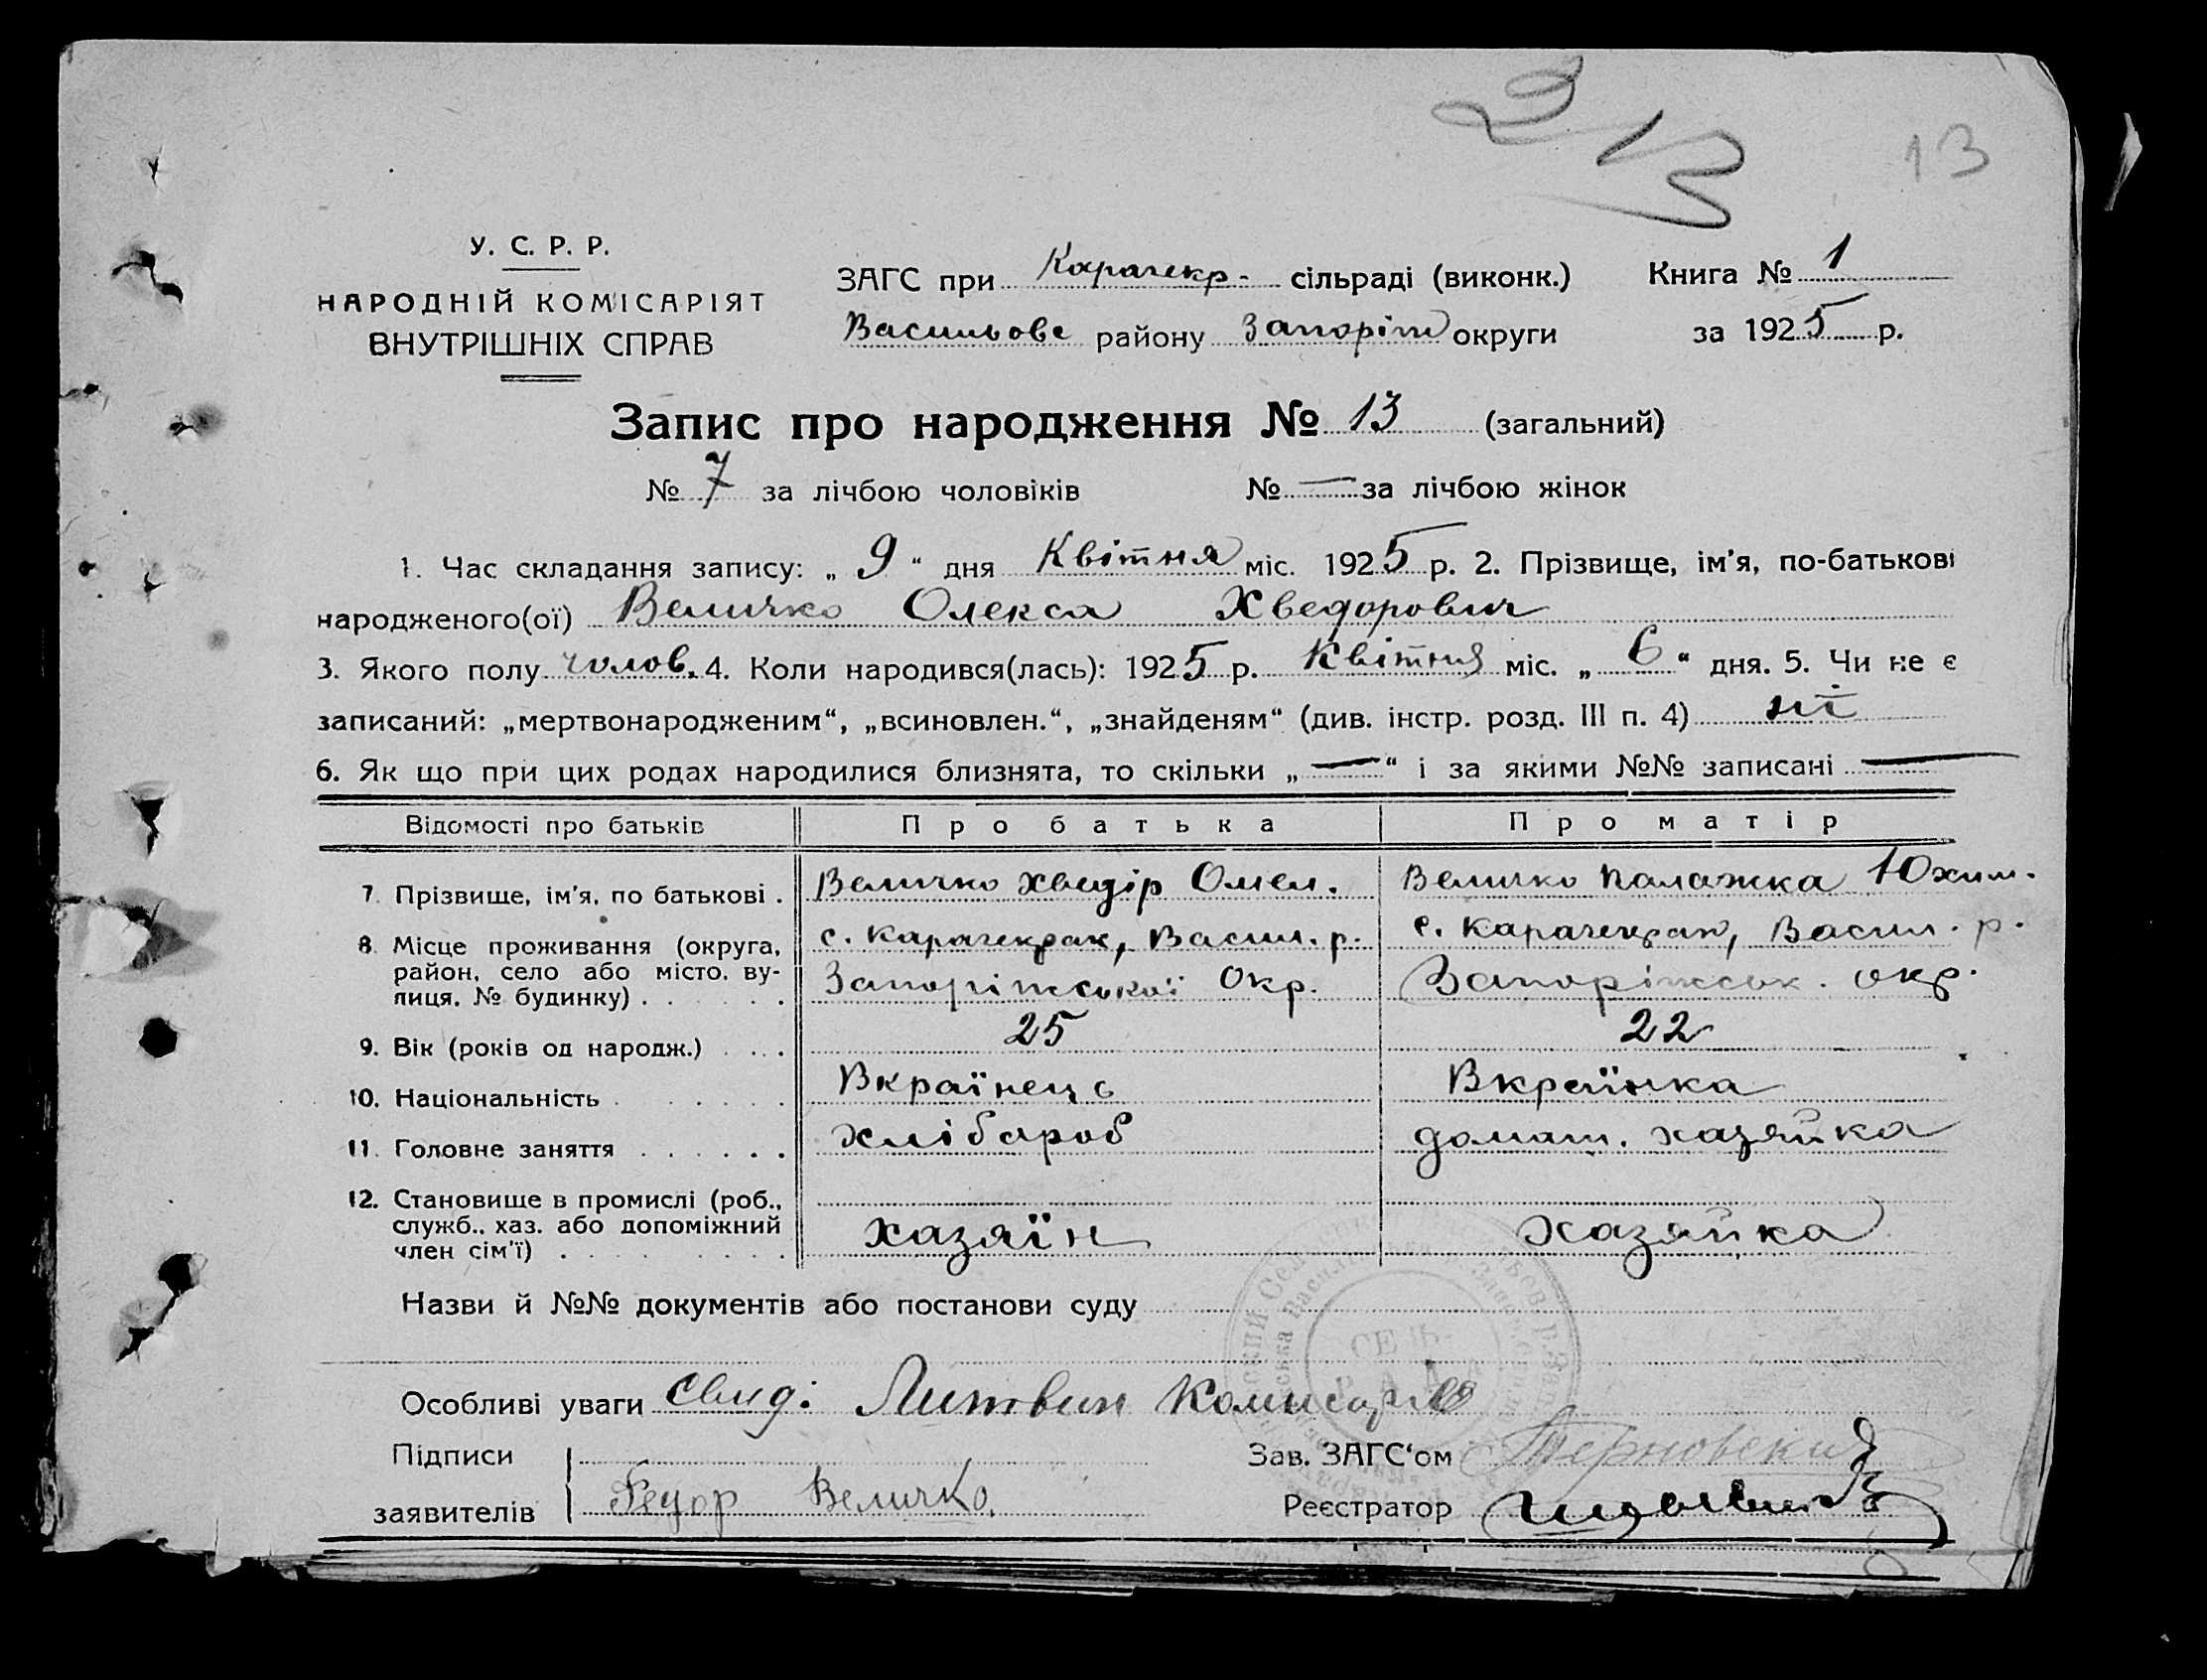 213
13
У. С. Р. Р.
НАРОДНІЙ КОМІСАРІЯТ
ВНУТРІШНІХ СПРАВ
ЗАГС при Карачекр- сільраді (виконк.) Книга № 1
Васильове району Запоріж округи за 1925 р.
Запис про народження № 13 (загальний)
№ 7 за лічбою чоловіків № — за лічбою жінок
1. Час складання запису: „ 9 “ дня Квітня міс. 1925 р. 2. Прізвище, ім'я, по-батькові
народженого(ої) Величко Олекса Хведорович
3. Якого полу чолов. 4. Коли народився(лась): 1925 р. Квітня міс. „ 6 “ дня. 5. Чи не є
записаний: „мертвонародженим“, „всиновлен.“, „знайденям“ (див. інстр. розд. III п. 4) ні
6. Як що при цих родах народилися близнята, то скільки „ — “ і за якими №№ записані —
Відомості про батьків Про батька Про матір
7. Прізвище, ім'я, по батькові . Величко Хведір Омел. Величко Палажка Юхим.
8. Місце проживання (округа, с. Карачекрак, Васил. р. с. Карачекрак, Васил. р.
район, село або місто, ву-
лиця, № будинку) . . . . . Запоріжської Окр. Запоріжськ. окр.
9. Вік (років од народж.) . . . . 25 22
10. Національність . . . . . . . Вкраїнець Вкраїнка
11. Головне заняття . . . . . . Хлібороб домаш. хазяйка
12. Становище в промислі (роб.,
служб., хаз. або допоміжний
член сім'ї) . . . . . . . . . хазяїн хазяйка
Назви й №№ документів або постанови суду
СЕЛЬ-
РАДА
Особливі уваги свид: Литвин Комисарів
Підписи Зав. ЗАГС'ом Терновский
заявителів Федор Величко. Реєстратор